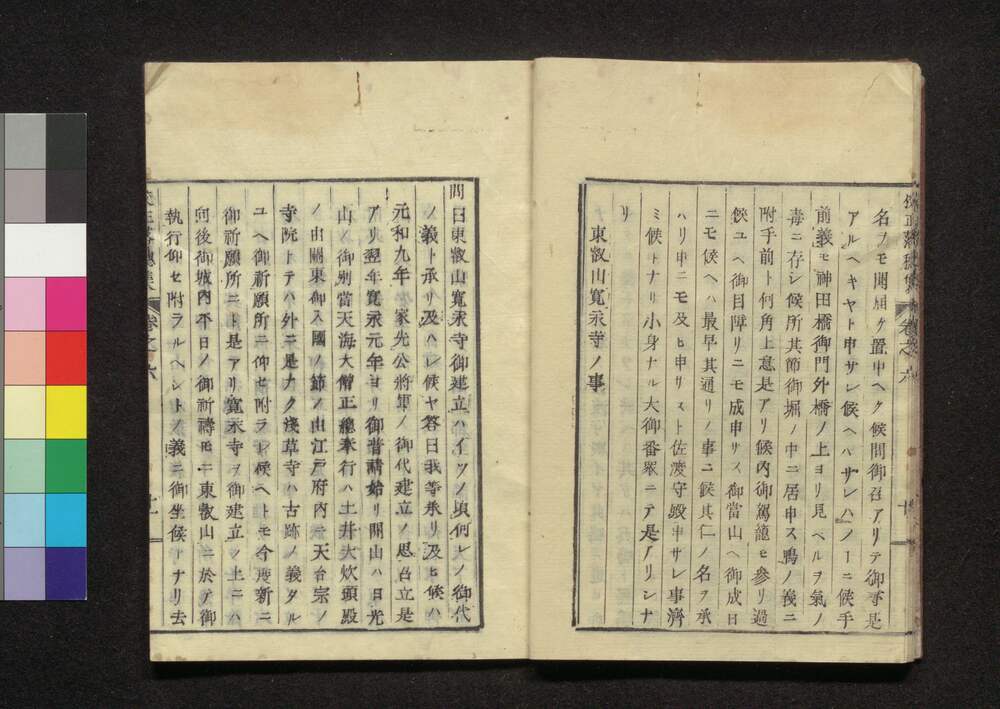 名ヲモ聞屆ケ置申ヘク候間御召アリテ御尋是
アルヘキヤト申サレ候ヘハサレハノーニ候手
前義モ神田橋御門外橋ノ上ヨリ見ヘルヲ氣ノ
毒ニ存シ候所其節御堀ノ中ニ居申ス鴨ノ義ニ
附手前ト何角上意是アリ候内御駕籠モ參リ過
候ユヘ御目障リニモ成申サス御當山ヘ御成日
ニモ候ヘハ最早其通リノ事ニ候其仁ノ名ヲ承
ハリ申ニモ及ヒ申サスト佐渡守殿申サレ事濟
ミ候トナリ小身ナル大御番衆ニテ是アリシナ
リ
東叡山寬永寺ノ事
問曰東叡山寬永寺御建立ハイツノ頃何レノ御代
ノ義ト承リ及ハレ候ヤ答曰我等承リ及ヒ候ハ
元和九年 家光公將軍ノ御代建立ノ思召立是
アリ翌年寬永元年ヨリ御普請始リ開山ハ日光
山ノ御別當天海大僧正總奉行ハ土井大炊頭殿
ノ由關東御入國ノ節ノ由江戸府内ニ天台宗ノ
寺院トテハ外ニ是ナク淺草寺ハ古跡ノ義タル
ユヘ御祈願所ニ仰セ附ラレ候ヘトモ今度新ニ
御祈願所ニト是アリ寬永寺ヲ御建立ノ上ニハ
向後御城内不日ノ御祈禱モ一ニ東叡山ニ於テ御
執行仰セ附ラルヘシトノ義ニ御坐候トナリ去
卷之六
卷之六